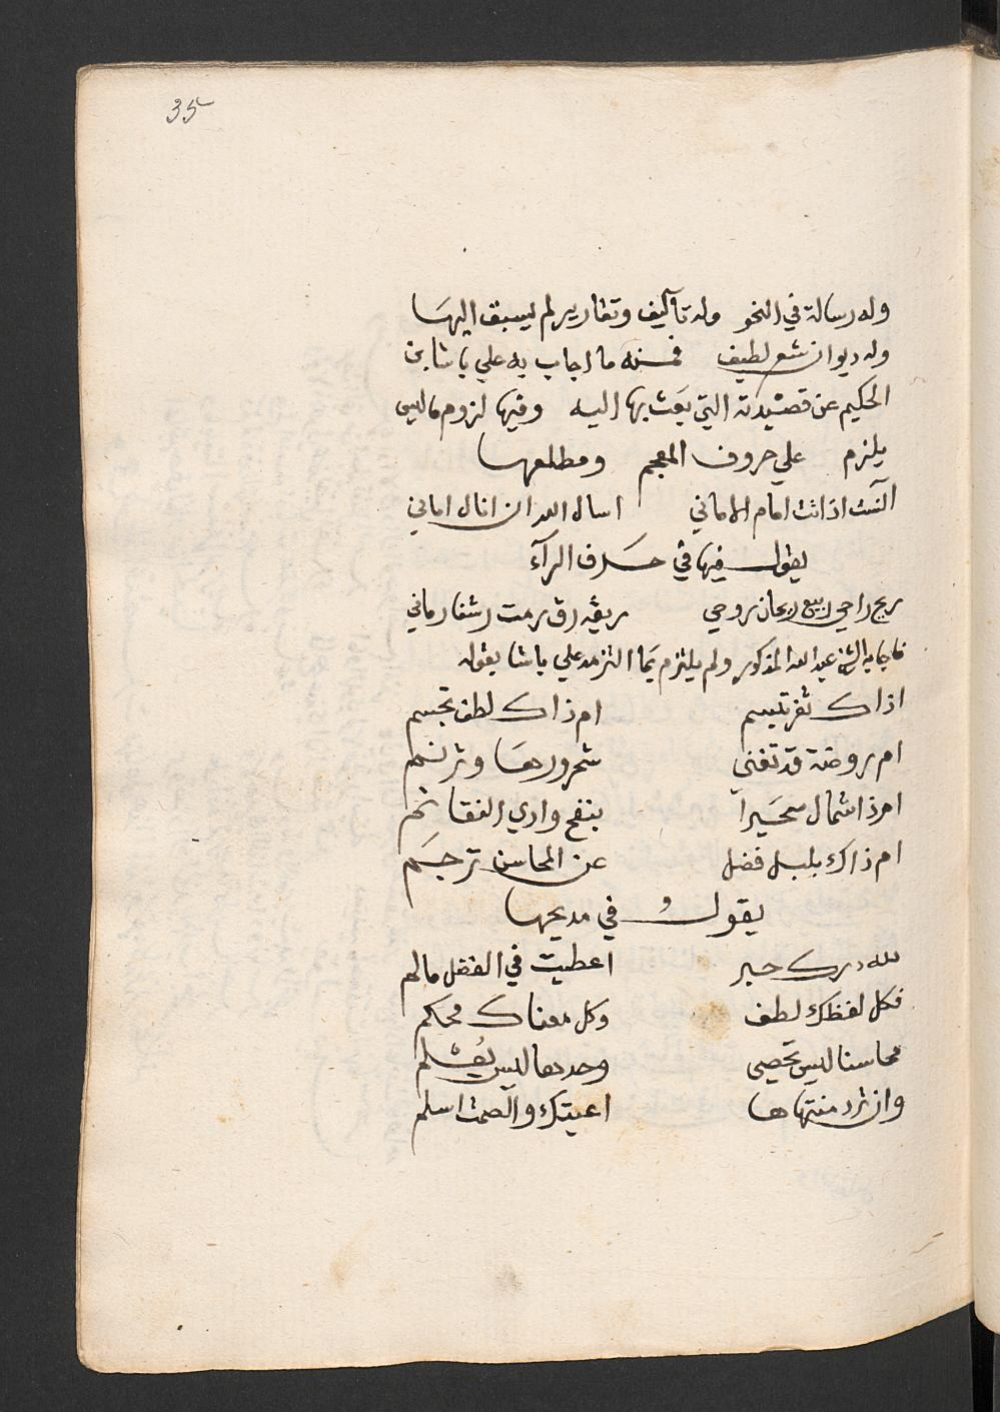 35
وله رسالة في النحو وله تآليف وتقارير لم يسبق اليها
وله ديوان شعر لطيف فمنه ما اجاب به علي باشا بن
الحكيم عن قصيدته التي بعث بها اليه وفيها لزوم ما ليس
يلزم علي حروف المعجم ومطلعها
آنست اذ انت امام الاماني اسال الله ان انال اماني
يقول فيها في حرف الرآء
ريح راحي ربيع ريحان روحي ريقه رق رمت رشفا رماني
فاجابه الشيخ عبد الله المذكور ولم يلتزم بما التزمه علي باشا بقوله
اذاك ثغر تبسم ام ذاك لطف تجسم
ام روضة قد تغني شحرورها وترنم
ام ذا شمال سحيرا بنفح وادي النقا نم
ام ذاك بلبل فضل عن المحاسن ترجم
يقول في مديحها
لله درك حبر اعطيت في الفضل ما لم
فكل لفظك لطف وكل معناك محكم
محاسنا ليس تحصي وحدها ليس يعلم
وان ترد منتهاها اعيتك والصمت اسلم